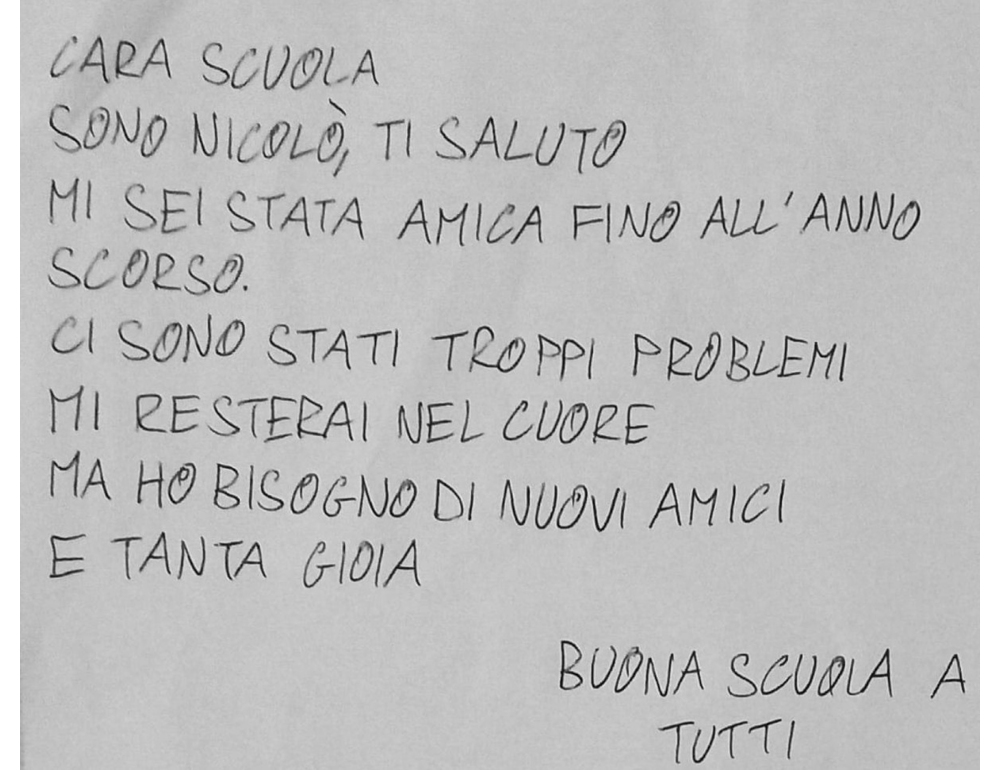 CARA SCUOLA
SONO NICOLÒ, TI SALUTO
MI SEI STATA AMICA FINO ALL'ANNO
SCORSO.
CI SONO STATI TROPPI PROBLEMI
MI RESTERAI NEL CUORE
MA HO BISOGNO DI NUOVI AMICI
E TANTA GIOIA
BUONA SCUOLA A
TUTTI